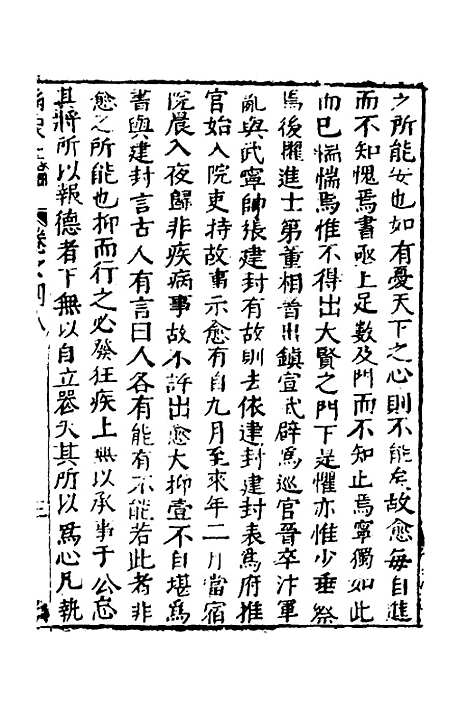 之所能安也如有憂天下之心則不能矣故愈每自進
而不知愧焉書亟上足數及門而不知止焉寧獨如此
而已惴惴焉惟不得出大賢之門下是懼亦惟少垂察
焉後擢進士第董相晉出鎮宣武辟為巡官晉卒汴軍
亂與武寧帥張建封有故則去依建封建封表為府推
官始入院吏持故事示愈有自九月至來年二月當宿
院晨入夜歸非疾病事故不許出愈大抑壹不自堪為
書與建封言古人有言曰人各有能有不能若此者非
愈之所能也抑而行之必發狂疾上無以承事于公忘
其將所以報德者下無以自立喪失其所以為心凡執
卷之四八
三